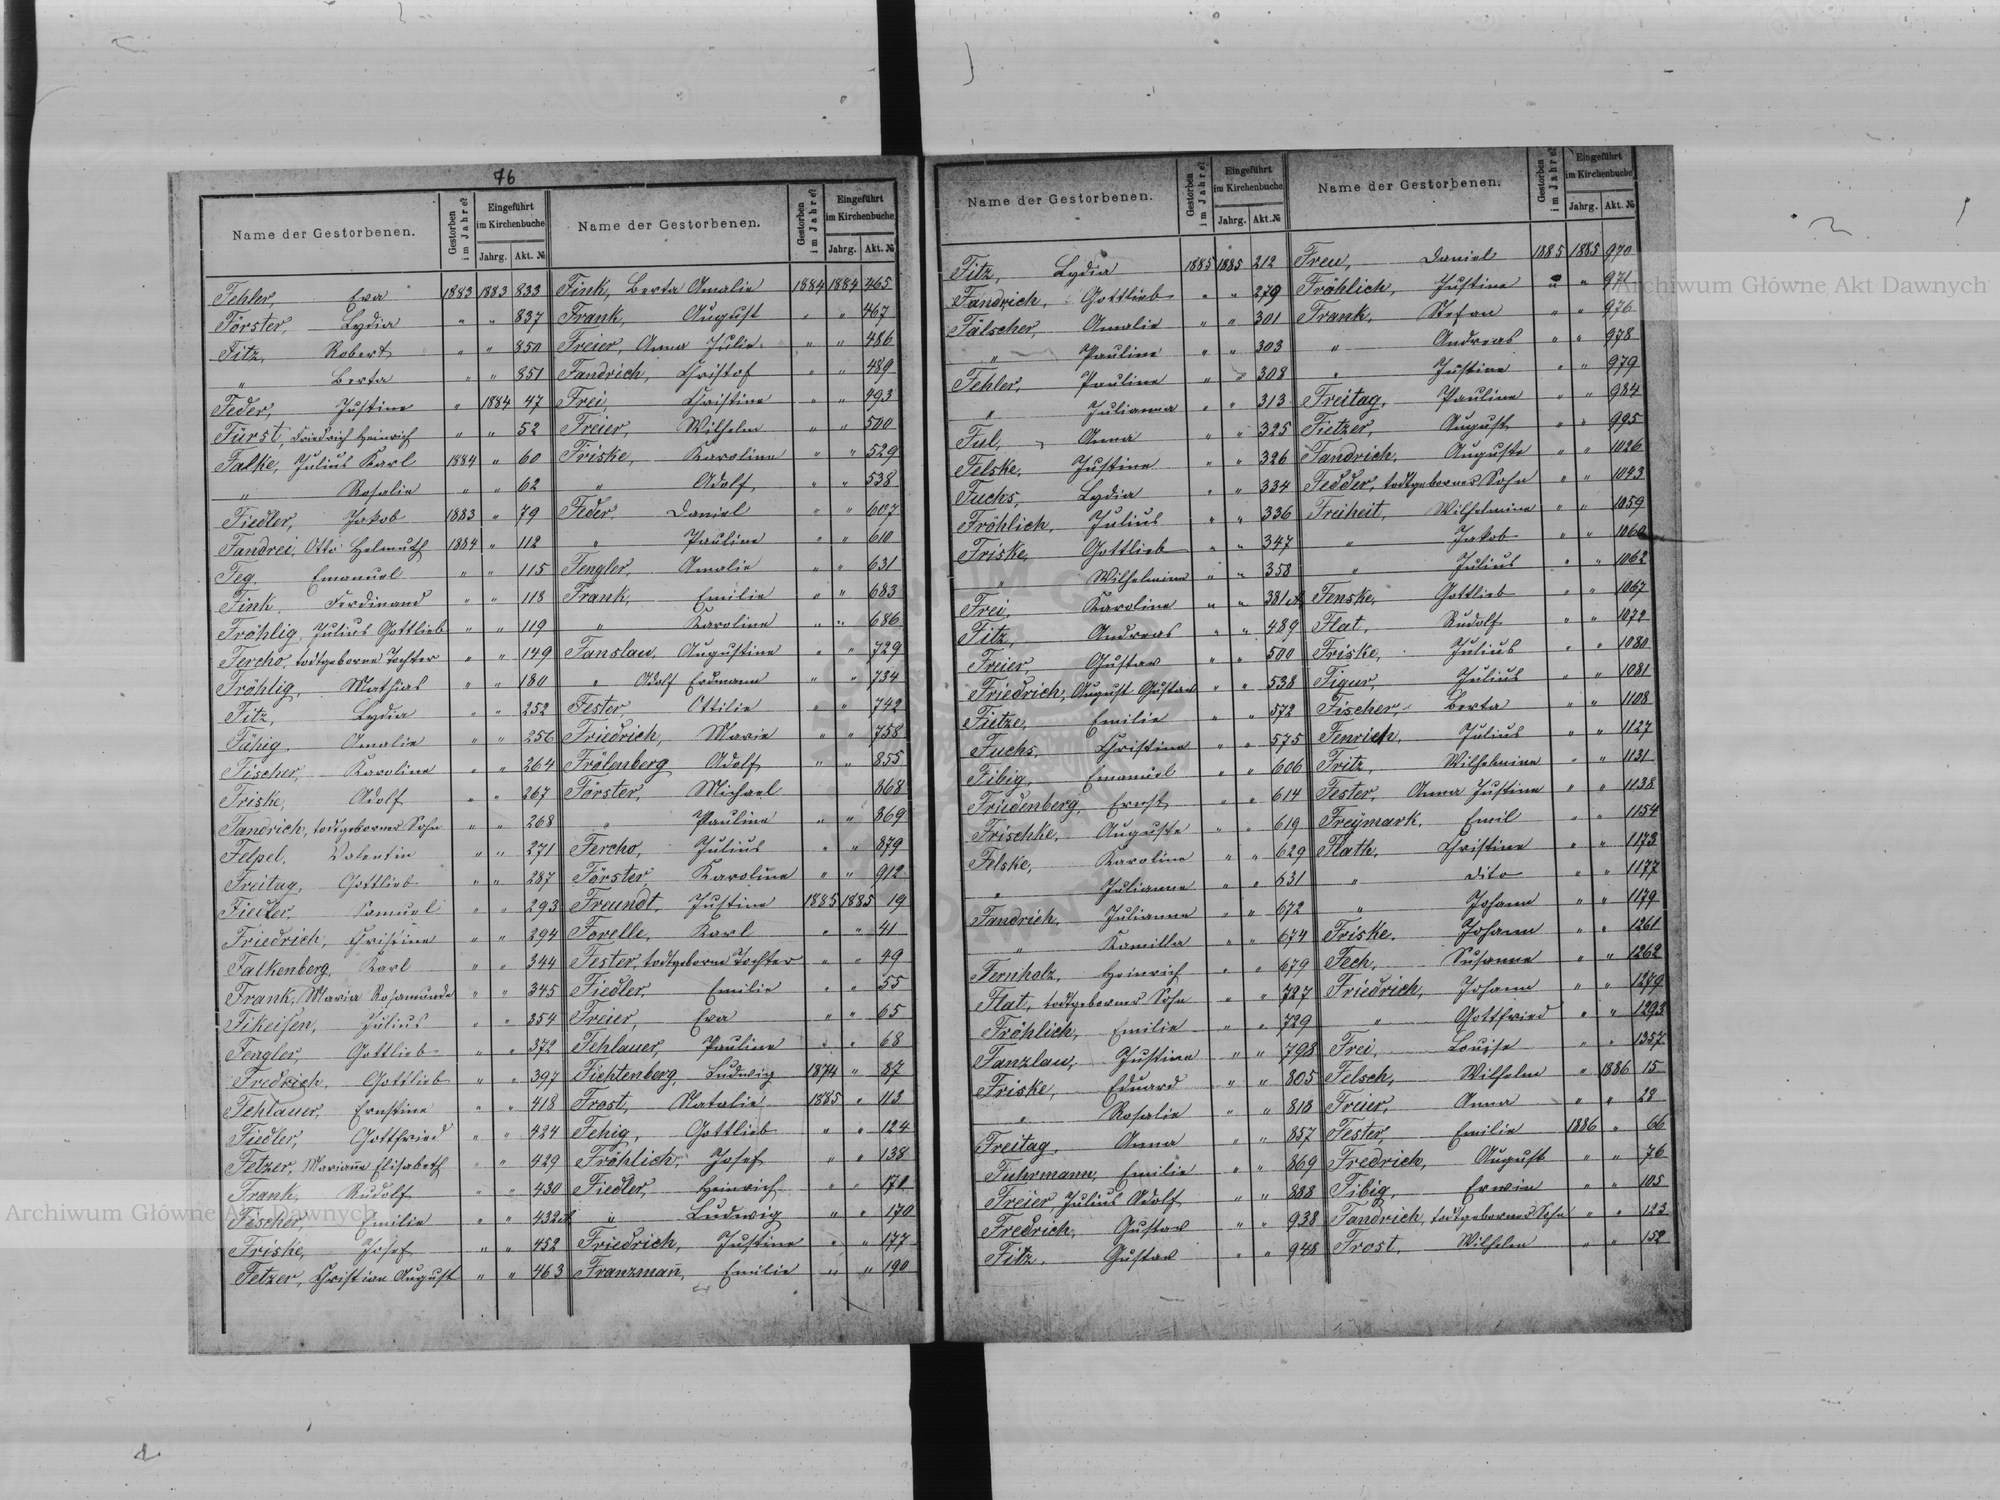 76
Name der Gestorbenen. Gestorben im Jahre? Eingeführt im Kirchenbuche Jahrg. Akt. №
Fehler, Eva 1883 1883 833
Förster, Lydia " " 837
Fitz, Robert " " 850
" Berta " " 851
Feder, Justine " 1884 47
Fürst, Friedrich Heinrich " " 52
Falke, Julius Karl 1884 " 60
" Rosalie " " 62
Fiedler, Jakob 1883 " 79
Fandrei, Otto Helmuth 1884 " 112
Feg, Emanuel " " 115
Fink, Ferdinand " " 118
Fröhlig, Julius Gottlieb " " 119
Fercho, todtgeborne Tochter " " 149
Fröhlig, Mathias " " 180
Fitz, Lydia " " 252
Fähig, Amalie " " 256
Fischer, Karoline " " 264
Friske, Adolf " " 267
Fandrich, todtgeborner Sohn " " 268
Felpel, Valentin " " 271
Freitag, Gottlieb " " 287
Fiedler, Samuel " " 293
Friedrich, Christine " " 294
Falkenberg, Karl " " 344
Frank, Maria Rosamunde " " 345
Fikeisen, Julius " " 354
Fengler, Gottlieb " " 372
Fredrich, Gottlieb " " 397
Fehlauer, Ernstine " " 418
Fiedler, Gottfried " " 424
Fetzer, Mariane Elisabeth " " 429
Frank, Rudolf " " 430
Fischer, Emilie " " 432
Friske, Josef " " 452
Fetzer, Christian August " " 463
Name der Gestorbenen. Gestorben im Jahre? Eingeführt im Kirchenbuche Jahrg. Akt. №
Fink, Berta Amalie 1884 1884 465
Frank, August " " 467
Freier, Anna Julie " " 486
Fandrich, Christof " " 489
Frei, Christine " " 493
Freier, Wilhelm " " 500
Friske, Karoline " " 529
" Adolf " " 538
Feder, Daniel " " 607
" Pauline " " 610
Fengler, Amalie " " 631
Frank, Emilie " " 683
" Karoline " " 686
Fanslau, Augustine " " 729
" Adolf Erdmann " " 734
Fester Ottilie " " 742
Friedrich, Marie " " 758
Frölenberg Adolf " " 855
Förster, Michael 868
" Pauline " " 869
Fercho, Julius " " 879
Förster Karoline " " 912
Freundt, Justine 1885 1885 19
Forelle, Karl " " 41
Fester, todtgeborne Tochter " " 49
Fiedler, Emilie " " 55
Freier, Eva " " 65
Fehlauer, Pauline " " 68
Fichtenberg, Ludwig 1874 " 87
Frost, Natalie 1885 " 113
Fehig, Gottlieb " " 124
Fröhlich, Josef " " 138
Fiedler, Heinrich " "
" Ludwig " " 170
Friedrich, Justine " " 177
Franzmañ, Emilie " " 190
Name der Gestorbenen. Gestorben im Jahre? Eingeführt im Kirchenbuche Jahrg. Akt. №
Fitz, Lydia 1885 1885 212
Fandrich, Gottlieb " " 279
Fälscher, Amalie " " 301
" Pauline " " 303
Fehler, Pauline " " 308
" Julianna " " 313
Ful, Anna " " 325
Felske, Justine " " 326
Fuchs, Lydia " " 334
Fröhlich, Julius " " 336
Friske, Gottlieb " " 347
" Wilhelmine " " 358
Frei, Karoline " " 381
Fitz, Andreas " " 489
Freier, Gustav " " 500
Friedrich, August Gustav " " 538
Fietze, Emilie " " 572
Fuchs, Christine " " 575
Fibig, Emanuel " " 606
Friedenberg, Ernst " " 614
Frischke, Auguste " " 619
Felske, Karoline " " 629
" Julianne " " 631
Fandrich, Julianne " " 672
" Kamilla " " 674
Fernholz, Heinrich " " 679
Flat, todtgeborner Sohn " " 727
Fröhlich, Emilie " " 729
Fanzlau, Justine " " 798
Friske, Eduard " " 805
" Rosalie " " 813
Freitag, Anna " " 857
Fuhrmann, Emilie " " 869
Freier Julius Adolf " " 888
Fredrich, Gustav " " 938
Fitz, Gustav " " 948
Name der Gestorbenen. Gestorben im Jahre? Eingeführt im Kirchenbuche Jahrg. Akt. №
Freu, Daniel 1885 1885 970
Fröhlich, Justine " " 971
Frank, Stefan " " 976
" Andreas " " 978
" Justine " " 979
Freitag, Pauline " " 984
Fietzer, August " " 995
Fandrich, Auguste " " 1026
Fedder, todtgeborner Sohn " " 1043
Freiheit, Wilhelmine " " 1059
" Jakob " " 1060
" Julius " " 1062
Fenske, Gottlieb " " 1067
Flat, Rudolf " " 1072
Friske, Julius " " 1080
Figur, Julius " " 1081
Fischer, Berta " " 1108
Fenrich, Julius " " 1127
Fritz, Wilhelmine " " 1131
Fester, Anna Justine " " 1138
Freymark, Emil " " 1154
Flath, Christine " " 1173
" dito " " 1177
" Johann " " 1179
Friske, Johann " " 1261
Fech, Susanne " " 1262
Friedrich, Johann " " 1279
" Gottfried " " 1293
Frei, Louise " " 1357
Felsch, Wilhelm " 1886 15
Freier, Anna " "
Fester, Emilie 1886 " 66
Fredrich, August " " 76
Fibig, Erwin " " 105
Fandrich, todtgeborner Sohn " " 123
Frost, Wilhelm " " 152
Archiwum Główne Akt Dawnych
Archiwum Główne Akt Dawnych